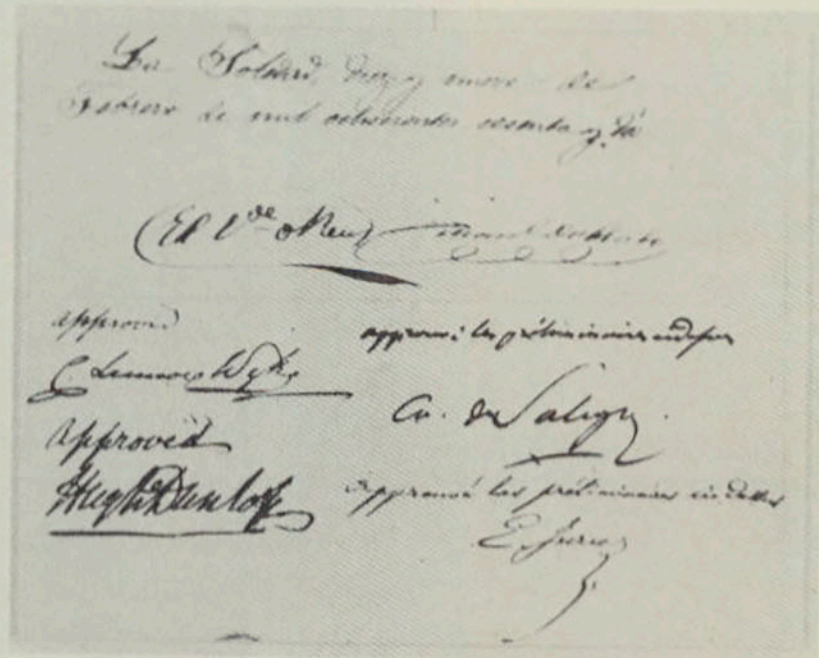 La Soledad, diez y nueve de
Febrero de mil ochocientos sesenta y dos
El C.de de Reus Manuel Doblado
approved
C. Lennox Wyke
approuvé les préliminaires ci dessus
A. de Saligny
approved
Hugh Dunlop
approuvé les préliminaires ci dessus
E. Jurien